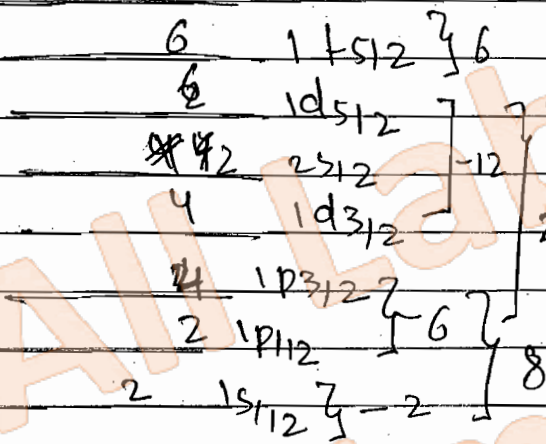 6 1f5/2 } 6
6 1d5/2
2 2s1/2 -12
4 1d3/2
4 1p3/2
2 1p1/2 - 6
2 1s1/2 } - 2 8
All Lab